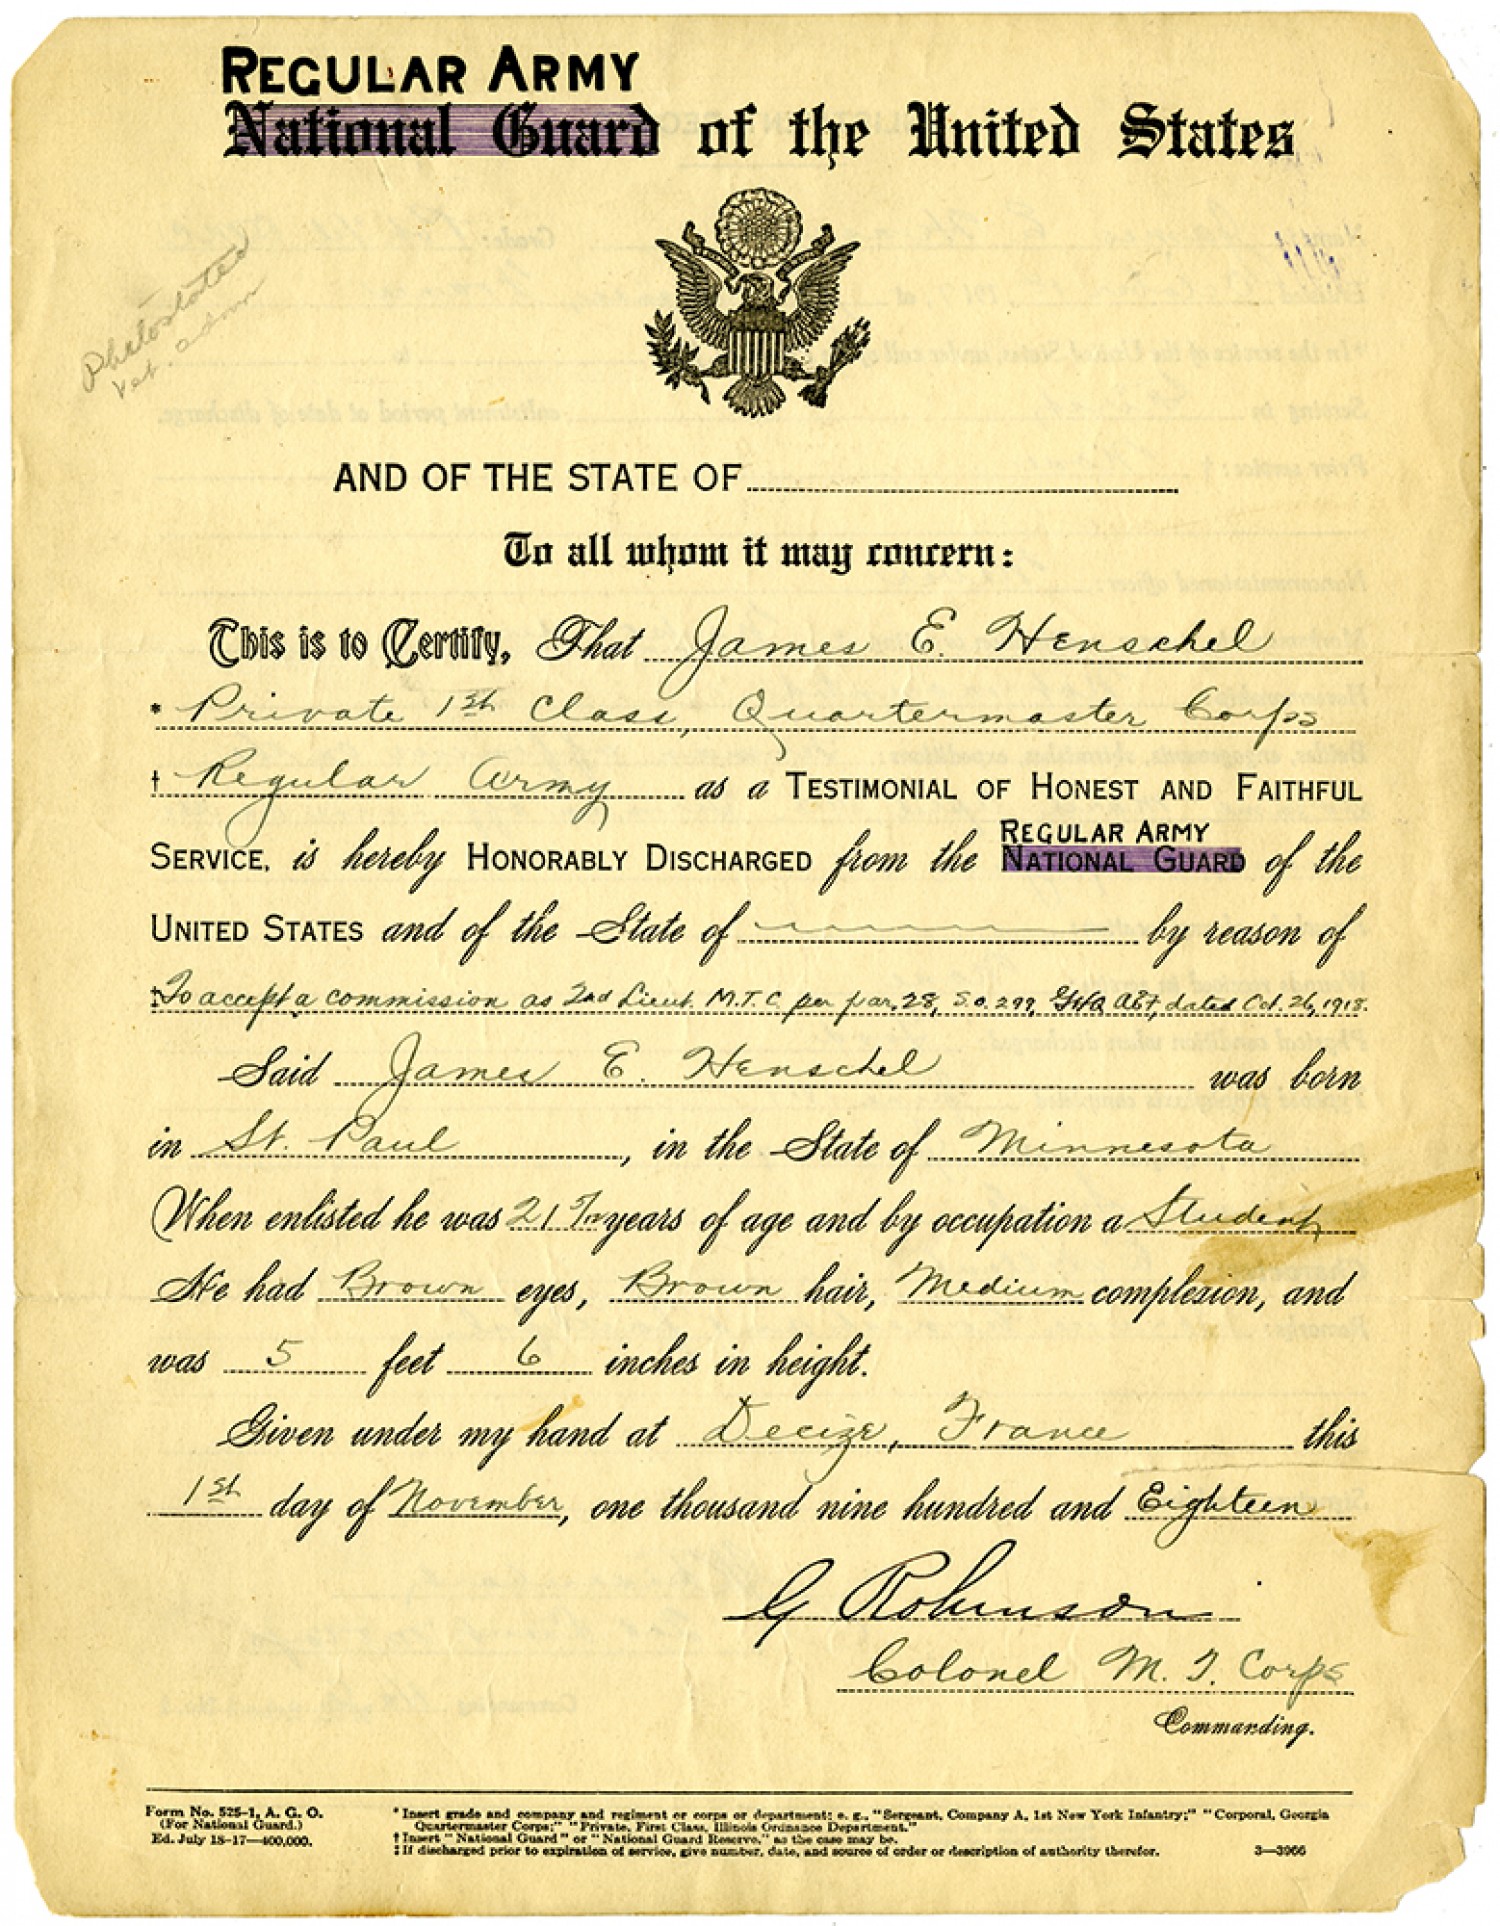 REGULAR ARMY
National Guard of the United States
Photostated
Vet. adm
AND OF THE STATE OF
To all whom it may concern:
This is to Certify, That James E. Henschel
* Private 1st Class, Quartermaster Corps
† Regular Army as a TESTIMONIAL OF HONEST AND FAITHFUL
REGULAR ARMY
SERVICE, is hereby HONORABLY DISCHARGED from the NATIONAL GUARD of the
UNITED STATES and of the State of by reason of
‡To accept a commission as 2nd Lieut. M.T.C. per par. 28, S.O. 299, GHQ AEF, dated Oct. 26, 1918.
Said James E. Henschel was born
in St. Paul, in the State of Minnesota
When enlisted he was 21 years of age and by occupation a Student
He had Brown eyes, Brown hair, Medium complexion, and
was 5 feet 6 inches in height.
Given under my hand at Decize, France this
1st day of November, one thousand nine hundred and Eighteen
G Robinson
Colonel M. T. Corps
Commanding.
Form No. 525-1, A. G. O.
(For National Guard.)
Ed. July 18-17—400,000.
* Insert grade and company and regiment or corps or department; e. g., "Sergeant, Company A, 1st New York Infantry;" "Corporal, Georgia
Quartermaster Corps;" "Private, First Class, Illinois Ordnance Department."
† Insert "National Guard" or "National Guard Reserve," as the case may be.
‡ If discharged prior to expiration of service, give number, date, and source of order or description of authority therefor.
3—3966